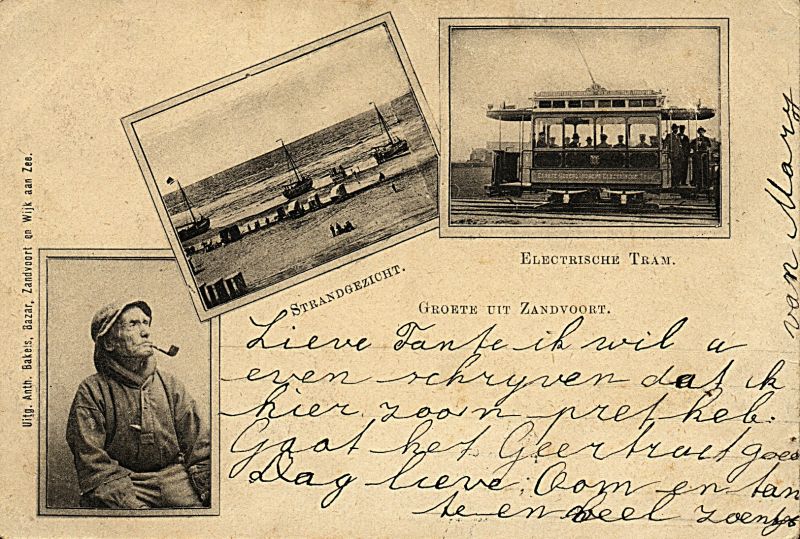 Uitg. Anth. Bakels, Bazar, Zandvoort en Wijk aan Zee.
STRANDGEZICHT.
ELECTRISCHE TRAM.
GROETE UIT ZANDVOORT.
Lieve Tante ik wil u
even schryven dat ik
hier zoo'n pret heb.
Gaat het Geertruit goed
Dag lieve Oom en tan
te en veel zoentjes
van Mary